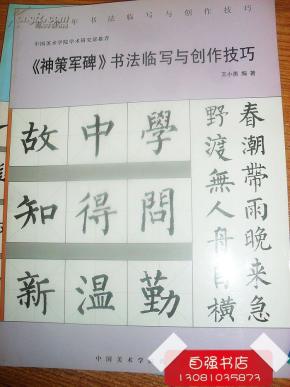 年书法临写与创作技巧
中国美术学院学术研究部推荐
《神策军碑》书法临写与创作技巧
王小勇 编著
春潮帶雨晚来急
野渡無人舟自横
學問勤
中得温
故知新
中国美术学
自强书店
13081035873